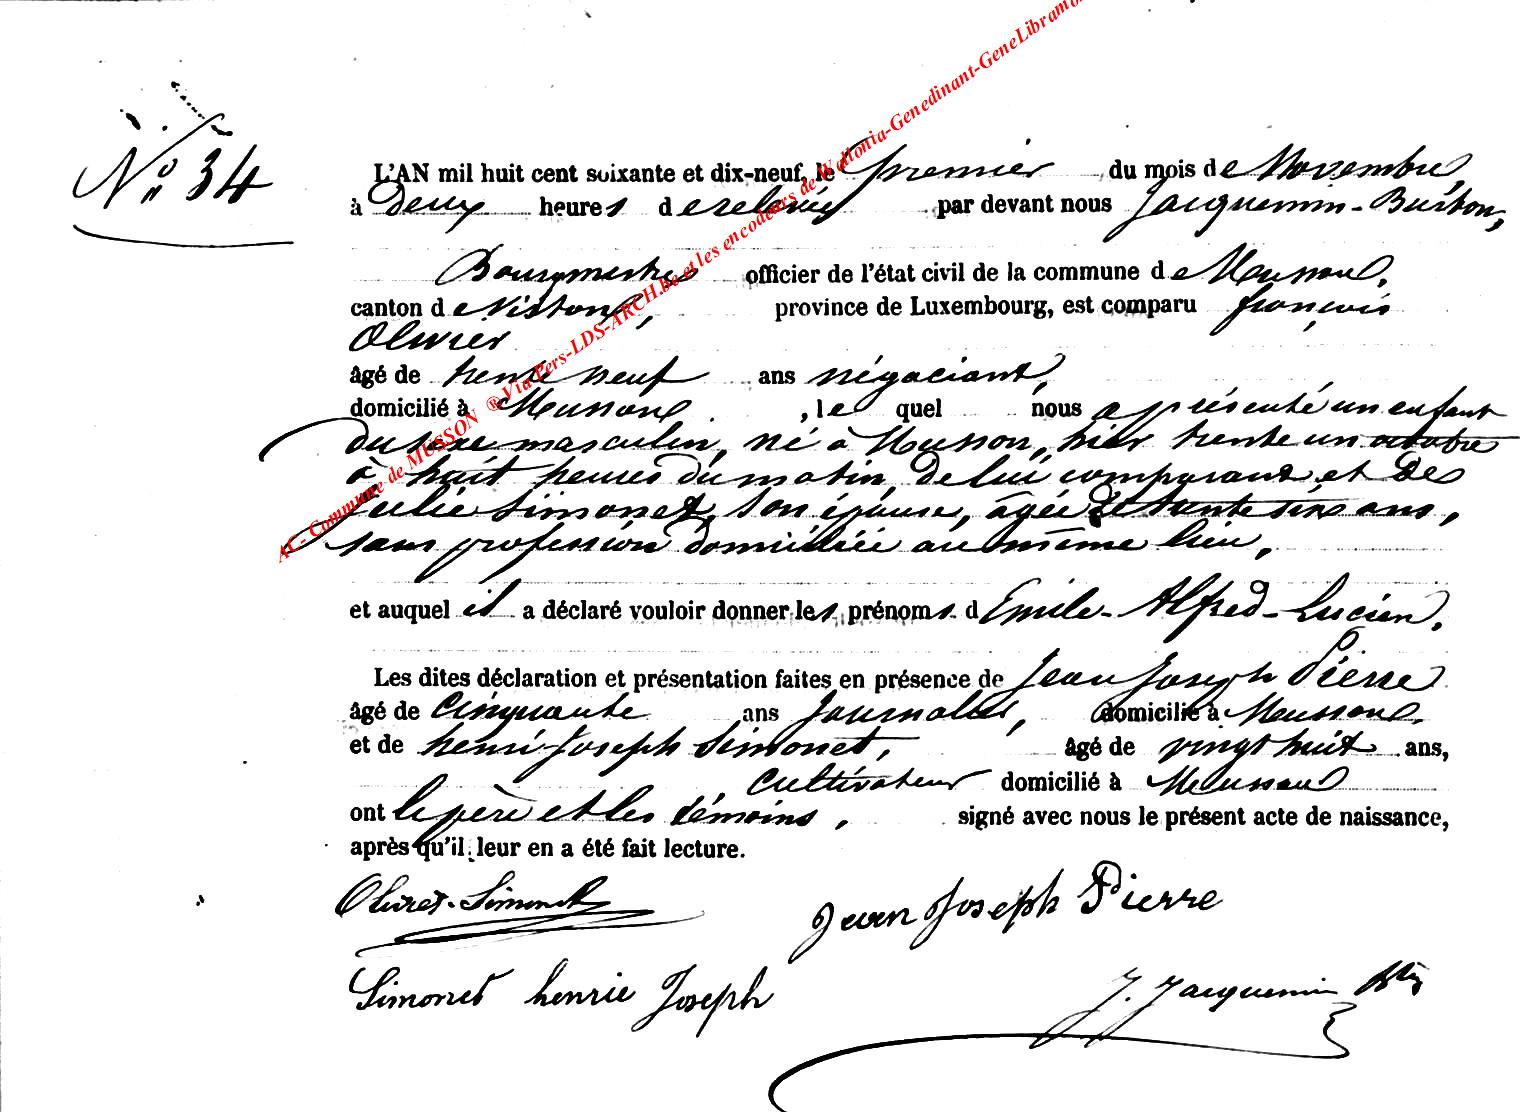 N° 34
L'AN mil huit cent soixante et dix-neuf, le premier du mois de Novembre,
à Deux heures de relevée par devant nous Jacquemin-Burton,
Bourgmestre officier de l'état civil de la commune de Musson,
canton de Virton, province de Luxembourg, est comparu françois
Olivier
âgé de trente neuf ans négociant,
domicilié à Musson , le quel nous a présenté un enfant
du sexe masculin, né à Musson, hier trente un octobre
à huit heures du matin, de lui comparant et de
Julie Simonet, son épouse, âgée de trente six ans,
sans profession domiciliée au même lieu,
et auquel il a déclaré vouloir donner les prénoms d'Emile-Alfred-Lucien.
Les dites déclaration et présentation faites en présence de Jean Joseph Pierre
âgé de cinquante ans Journalier, domicilié à Musson,
et de henri-Joseph Simonet, âgé de vingt huit ans,
cultivateur domicilié à Musson
ont le père et les témoins, signé avec nous le présent acte de naissance,
après qu'il leur en a été fait lecture.
Olivier-Simonet
Jean Joseph Pierre
Simonet henrie Joseph
J. Jacquemin
AC- Commune de MUSSON ® Via Pers-LDS-ARCH.be et les encodeurs de Wallonia-Genedinant-GeneLibramo